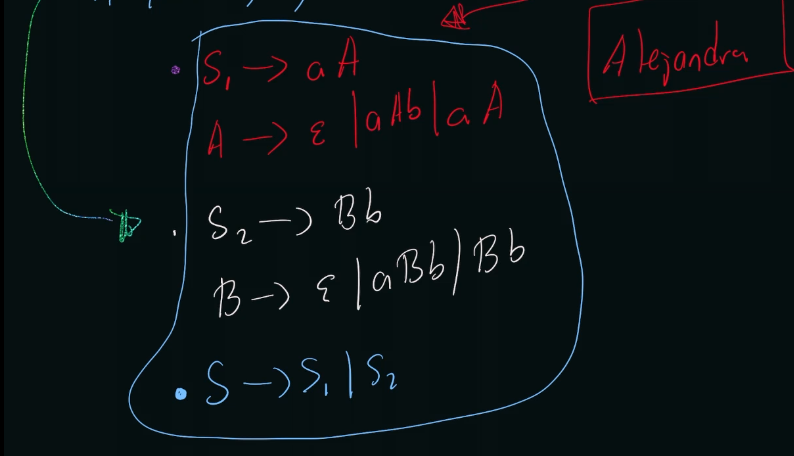 Alejandra
S₁ → aA
A → ε | aAb | aA
S₂ → Bb
B → ε | aBb | Bb
S → S₁ | S₂